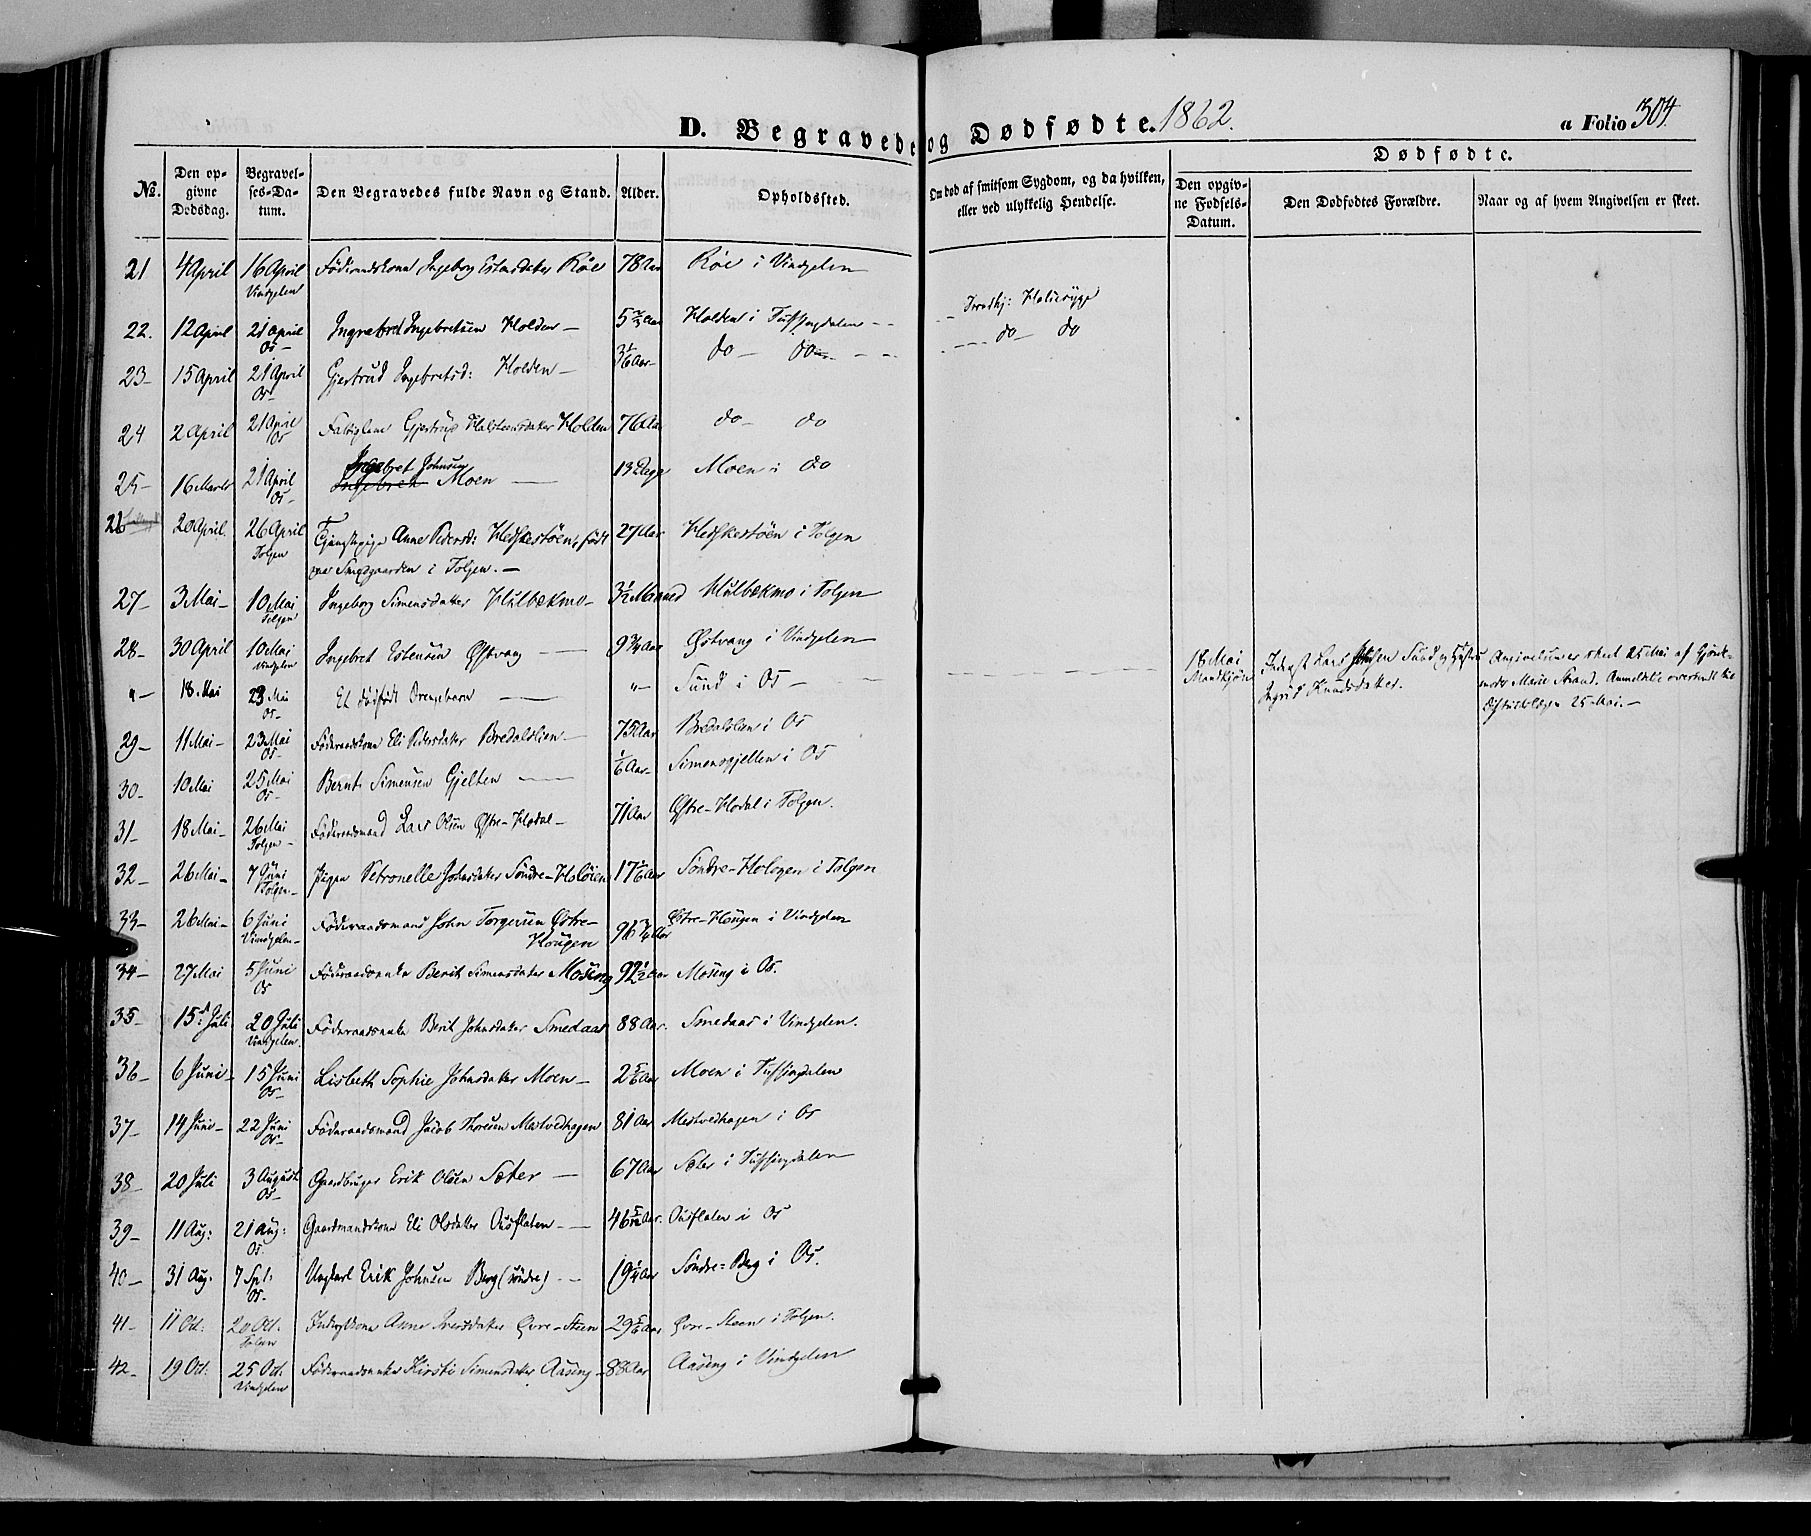 D. Begravede og Dødfødte. 1862. a Folio 304.
Dødfødte.
No. Den op- givne Dødsdag. Begravel- ses-Da- tum. Den Begravedes fulde Navn og Stand. Alder. Opholdssted. Om død af smitsom Sygdom, og da hvilken, eller ved ulykkelig Hendelse. Den opgiv- ne Fødsels- Datum. Den Dødfødtes Forældre. Naar og af hvem Angivelsen er skeet.
21 4 April 16 April Vindgelen Föderaadskone Ingeborg Estensdatter Röe 78 Aar Röe i Vindgelen
22. 12 April 21 april Os- Ingebret Ingebretsen Holden - Holden i Tufsingdalen - -
do do
23- 15 April 21 April Os- Gjertrud Ingebretsd: Holden - 3 1/6 Aar- do- do- - -
24 2 April 21 April Os Gjertrud Halstensdatter Holden 76 Aar do- do
25- 16 Marts 21 April Os- Ingebret Johnsen Moen - 13 Dage Moen i do
26 20 April. 26 April Tolgen Tjenestepige Anne Pedersd: 27 Aar i Tolgen
paa Smedgaarden i Tolgen. -
27- 3 Mai- 10 Mai Tolgen Ingeborg Simensdatter Hulbækmo- 3 1/2 Maaned Hulbækmo i Tolgen
28- 30 April 10 Mai Vindgelen Ingebret Estensen Østvang - 9 3/4 Aar Østvang i Vindgelen
"- 18. Mai 23 Mai Os- Et dödfödt Drengebarn - "- Sund i Os - 18 Mai Mandkjön Inderst Lars Sund og Hustru Ingrid Knudsdatter. Angivelsen er skeet 25 Mai af Gjorde- moder Marie Strand. Anmeldelse oversendt til 25 Mai. -
29- 11 Mai- 23 Mai Os- Föderaadskone Eli Pedersdatter Bredalslien- 75 Aar Bredalslien i Os
30- 10 Mai 25 Mai Os- Bernt Simensen Gjelten - 1/6 Aar- Simensgjelten i Os
31- 18 Mai- 26 Mai Tolgen- Föderaadsmand Lars Olsen Østre-Hodal- 71 Aar Østre-Hodal i Tolgen.
32- 26 Mai- 7 Juni Tolgen- Pigen Petronelle Johnsdatter Söndre-Holöien 17 1/6 Aar Söndre-Holøgen i Tolgen
33- 26 Mai- 6 Juni Vindgelen- Föderaadsmand John Torgersen Østre- Hougen 96 3/4 Aar Østre-Hougen i Vindgelen
34- 27 Mai 5 Juni Os Föderaadsenke Berit Simensdatter Moseng 92 1/2 Aar Moseng i Os.
35- 15 Juli 20 Juli Vindgelen. Föderaadsenke Berit Johnsdatter Smedaas 88 Aar. Smedaas i Vindgelen.
36- 6 Juni- 15 Juni Os- Lisbeth Sophie Johnsdatter Moen- 2 5/6 Aar Moen i Tufsingdalen
37- 14 Juni- 22 Juni Os- Föderaadsmand Jacob Thoresen Mastvedhagen 81 Aar Mastvedhagen i Os
38- 20 Juli 3 August Os- Gaardbruger Erik Olsen Sæter - 67 Aar Sæter i Tufsingdalen
39- 11 Aug: 21 Aug: Os. Gaardmandskone Eli Olsdatter Ousflaten - - 46 5/12 Aar. Ousflaten i Os
40- 31 Aug: 7 Spt: Os- Ungkarl Erik Johnsen Berg (söndre) - - 19 1/4 Aar Söndre-Berg i Os.
41- 11 Oct: 20 Oct: Tolgen Anne Iversdatter Øvre-Steen - 29 5/6 Aar Øvre-Steen i Tolgen.
42- 19 Oct: 25 Oct: Vindgelen Föderaadsenke Kirsti Simensdatter Aaseng- 88 Aar Aaseng i Vindgelen